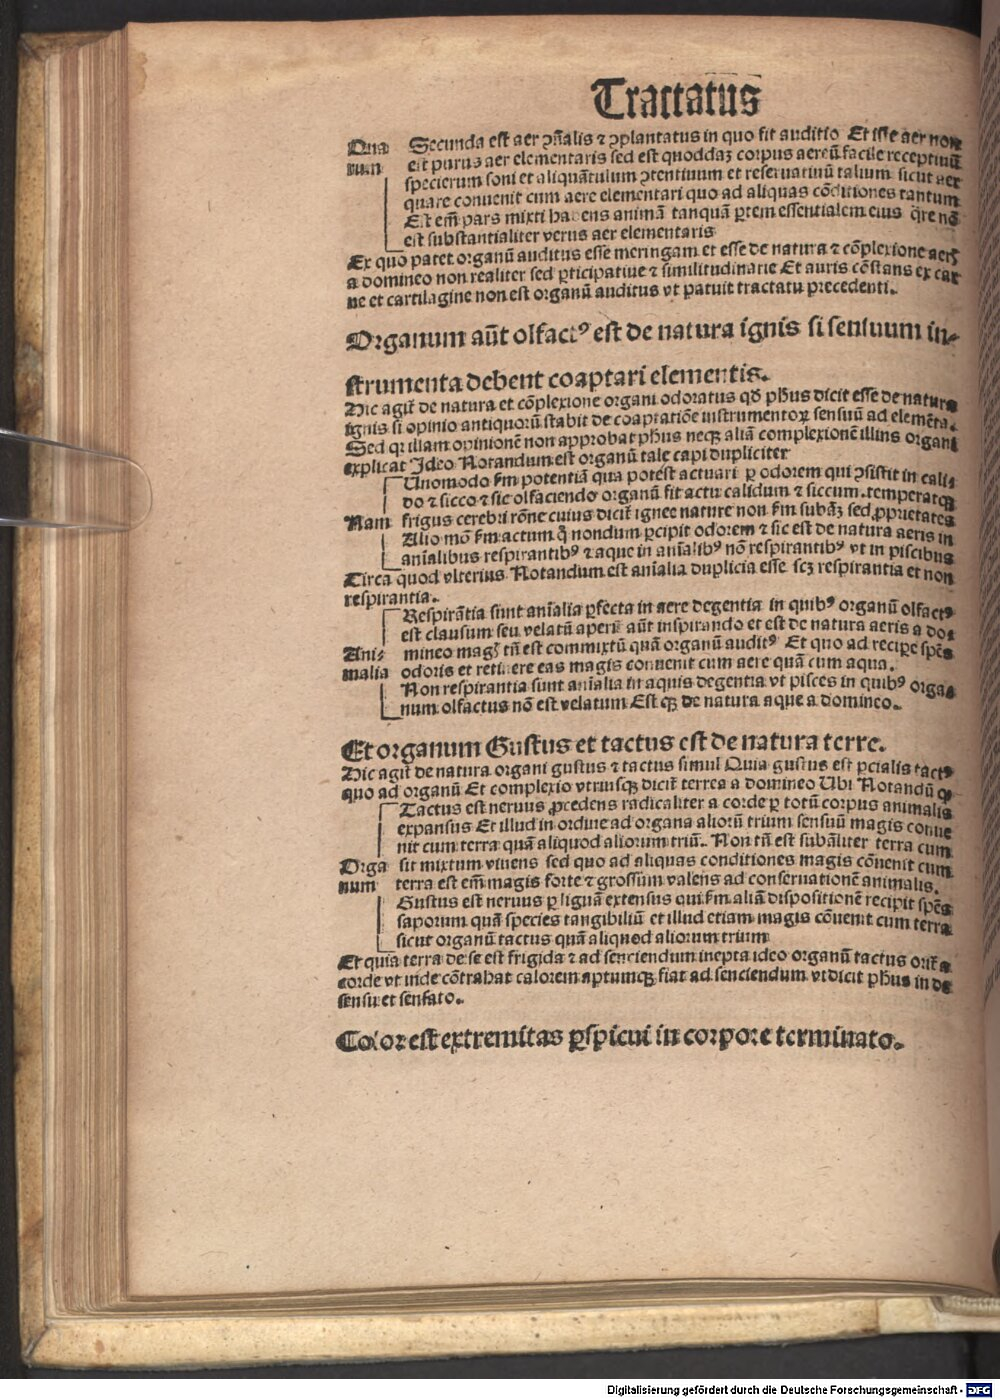 Tractatus
Secunda est aer ↄn̄alis ⁊ ↄplantatus in quo fit auditio Et iste aer non
est purus aer elementaris sed est quoddaꝫ corpus aereū facile receptiuū
specierum soni et aliquātulum ↄtentiuum et reseruatiuū talium sicut aer
quare conuenit cum aere elementari quo ad aliquas cōditiones tantum
Est em̄ pars mixti habens animā tanquā ꝑtem essentialem eius q̄re nō
est substantialiter verus aer elementaris
Ex quo patet organū auditus esse meringam et esse de natura ⁊ cōplexione aerꝭ
a domineo non realiter sed ꝑticipatiue ⁊ similitudinarie Et auris cōstans ex car
ne et cartilagine non est organū auditus vt patuit tractatu precedenti.
Organum aūt olfactꝰ est de natura ignis si sensuum in-
strumenta debent coaptari elementis.
Hic agit̄ de natura et cōplexione organi odoratus qd̄ ph̄us dicit esse de natura
ignis si opinio antiquorū stabit de coaptatiōe instrumentoꝝ sensuū ad elemēta.
Sed qꝛ illam opinionē non approbat ph̄us neqꝫ aliā complexionē illius organi
explicat Ideo Notandum est organū tale capi dupliciter
Unomodo fm potentiā qua potest actuari ꝑ odorem qui ↄsistit in cali
do ⁊ sicco ⁊ sic olfaciendo organū fit actu calidum ⁊ siccum. temperatqꝫ
Nam frigus cerebri rōne cuius dicit̄ ignee nature non fm subāꝫ sed ꝓprietates
Alio mō fm actum q̄ nondum ꝑcipit odorem ⁊ sic est de natura aeris in
anīalibus respirantibꝰ ⁊ aque in anīalibꝰ nō respirantibꝰ vt in piscibus
Circa quod vlterius Notandum est anīalia duplicia esse scꝫ respirantia et non
respirantia.
Respirātia sunt anīalia ꝑfecta in aere degentia in quibꝰ organū olfactꝰ
est clausum seu velatū aperit̄ aūt inspirando et est de natura aeris a do-
Ani- mineo magꝭ tn̄ est commixtū quā organū auditꝰ Et quo ad recipe sp̄es
malia odoris et retinere eas magis conuenit cum aere quā cum aqua.
Non respirantia sunt anīalia in aquis degentia vt pisces in quibꝰ orga-
num olfactus nō est velatum Est qꝫ de natura aque a domineo.
Et organum Gustus et tactus est de natura terre.
Hic agit̄ de natura organi gustus ⁊ tactus simul Quia gustus est ꝑcialis tactꝰ
quo ad organū Et complexio vtriusqꝫ dicit̄ terrea a domineo Ubi Notandū ꝙ
Tactus est neruus ꝓcedens radicaliter a corde ꝑ totū corpus animalis
expansus Et illud in ordine ad organa aliorū trium sensuū magis conue
nit cum terra quā aliquod aliorum triū. Non tn̄ est subāliter terra cum
Orga sit mixtum viuens sed quo ad aliquas conditiones magis cōuenit cum
num terra est em̄ magis forte ⁊ grossum valens ad conseruationē animalis.
Gustus est neruus ꝑ liguā extensus qui fm aliā dispositionē recipit sp̄es
saporum quā species tangibiliū et illud etiam magis cōuenit cum terra
sicut organū tactus quā aliquod aliorum trium
Et quia terra de se est frigida ⁊ ad senciendum inepta ideo organū tactus orit̄ a
corde vt inde cōtrahat calorem aptumqꝫ fiat ad senciendum vt dicit ph̄us in de
sensu et sensato.
Color est extremitas ꝑspicui in corpore terminato.
Digitalisierung gefördert durch die Deutsche Forschungsgemeinschaft - DFG